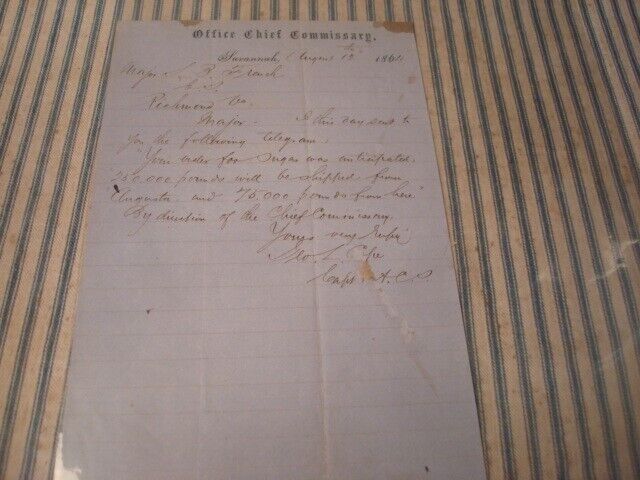 Office Chief Commissary,
Savannah, August 13th 1864
Major S. B. French
C. S.
Richmond Va.
Major - I this day sent to
you the following telegram:
Your order for Sugar was anticipated.
250,000 pounds will be shipped from
Augusta and 75,000 pounds from here"
By direction of the Chief Commissary
Yours very
Geo. L.
Capt. A.C.S.